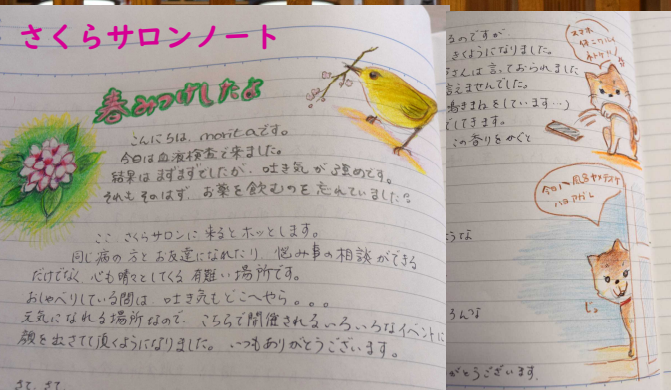 さくらサロンノート
春みつけしたよ
こんにちは、moritaです。
今日は血液検査で来ました。
結果はまずまずでしたが、吐き気が強めです。
それもそのはず、お薬を飲むのを忘れていました?
ここ、さくらサロンに来るとホッとします。
同じ病の方とお友達になれたり、悩み事の相談ができる
だけでなく、心も晴々としてくる有難い場所です。
おしゃべりしている間は、吐き気もどこへやら。。。
元気になれる場所なので、こちらで開催されるいろいろなイベントに
顔を出させて頂くようになりました。いつもありがとうございます。
さて、さて、
るのですが
きくようになりました。
さんは言っておられました
言えませんでした。
まねをしています…)
してきます。
この香りをかぐと
スマホ
うな
今日ハ
じっ
ろんな
がとうございます